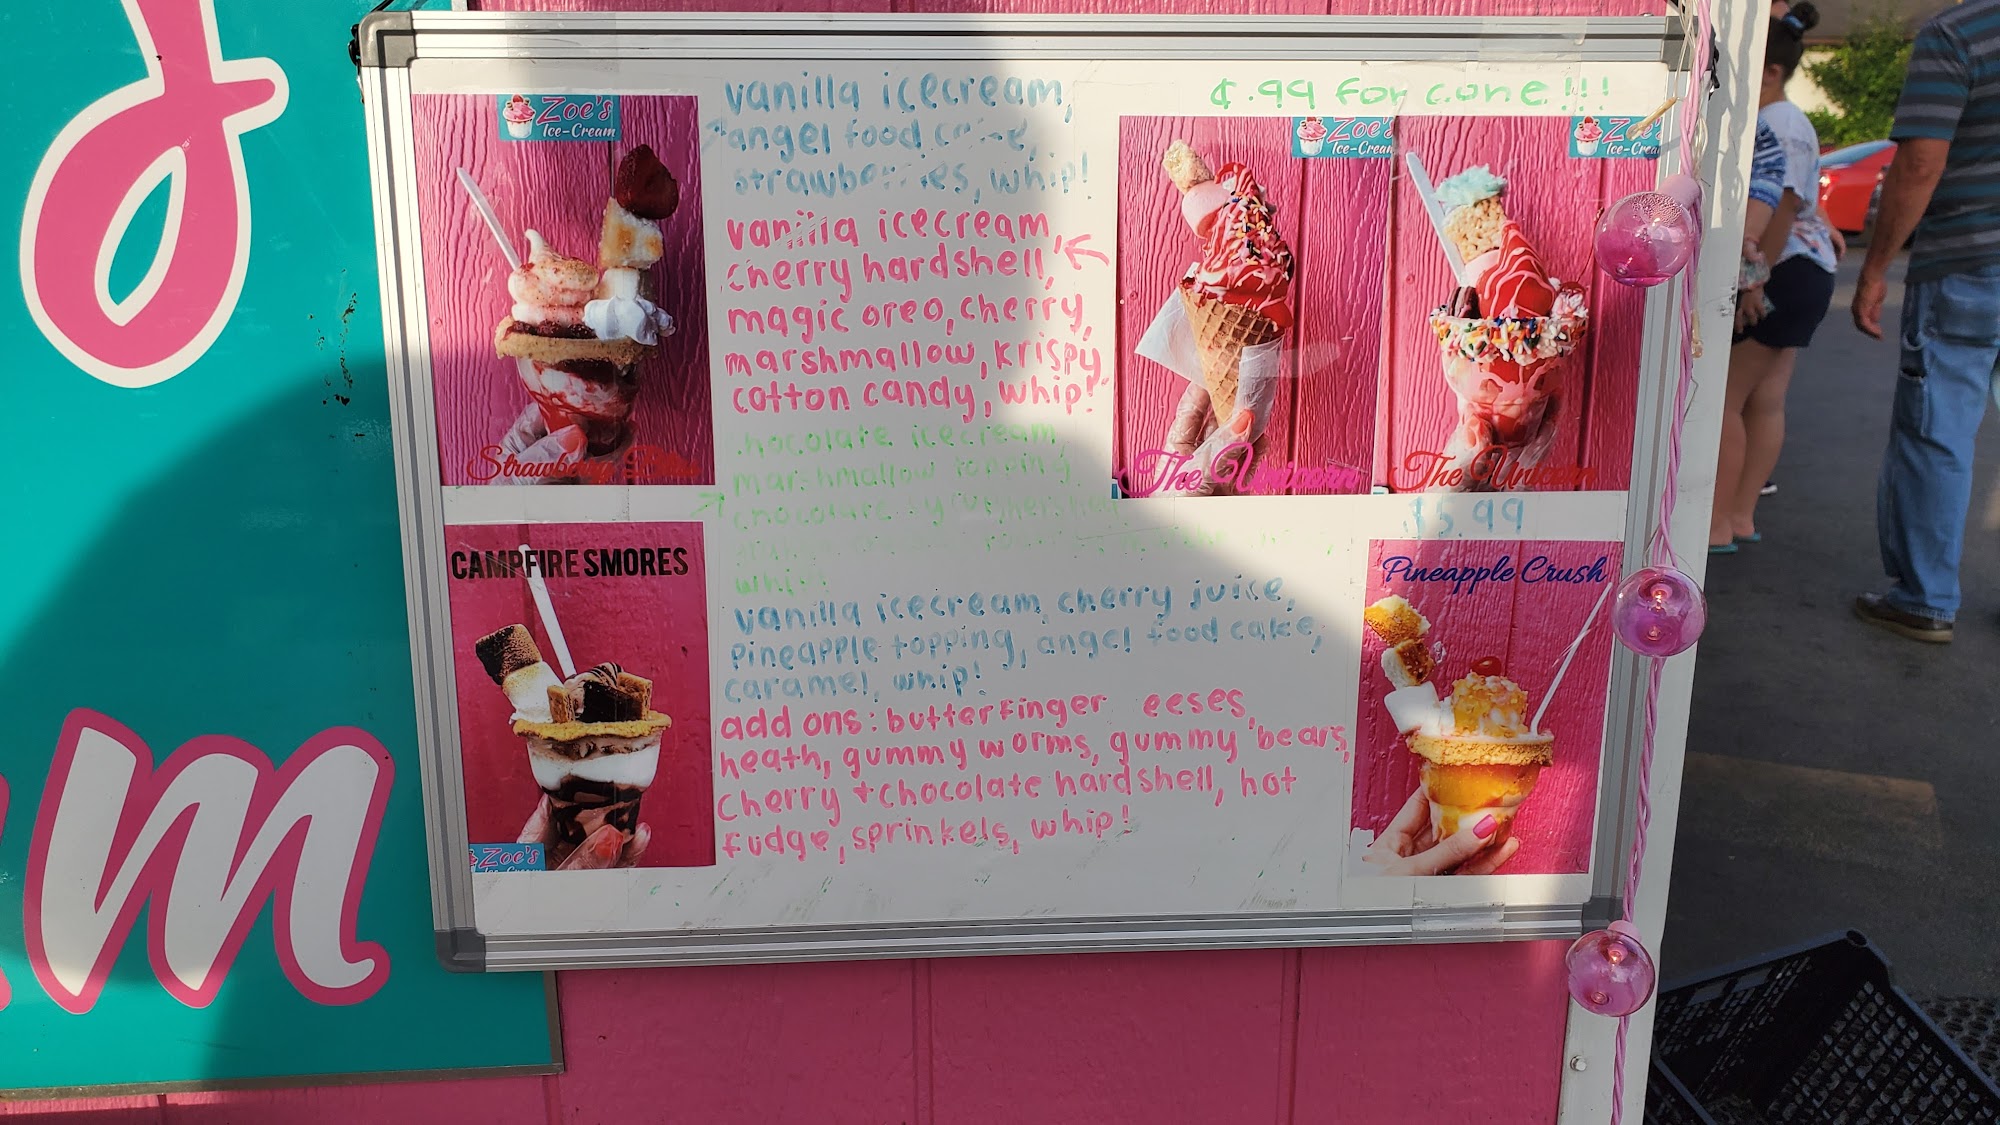 Zoe's
Ice-Cream
Strawberry
vanilla icecream,
angel food
strawberries, whip!
vanilla icecream,
cherry hardshell,
magic oreo, cherry,
marshmallow, krispy
cotton candy, whip!
chocolate icecream
marshmallow topping
chocolate
whip!
vanilla icecream, cherry juice,
pineapple topping, angel food cake,
caramel, whip!
add ons: butterfinger eeses,
heath, gummy worms, gummy bears,
cherry + chocolate hardshell, hot
fudge, sprinkels, whip!
¢.99 for cone!!!
Zoe's
Ice-Cream
The Unicorn
Zoe's
Ice-Cream
The Unicorn
$5.99
CAMPFIRE SMORES
Zoe's
Pineapple Crush
m